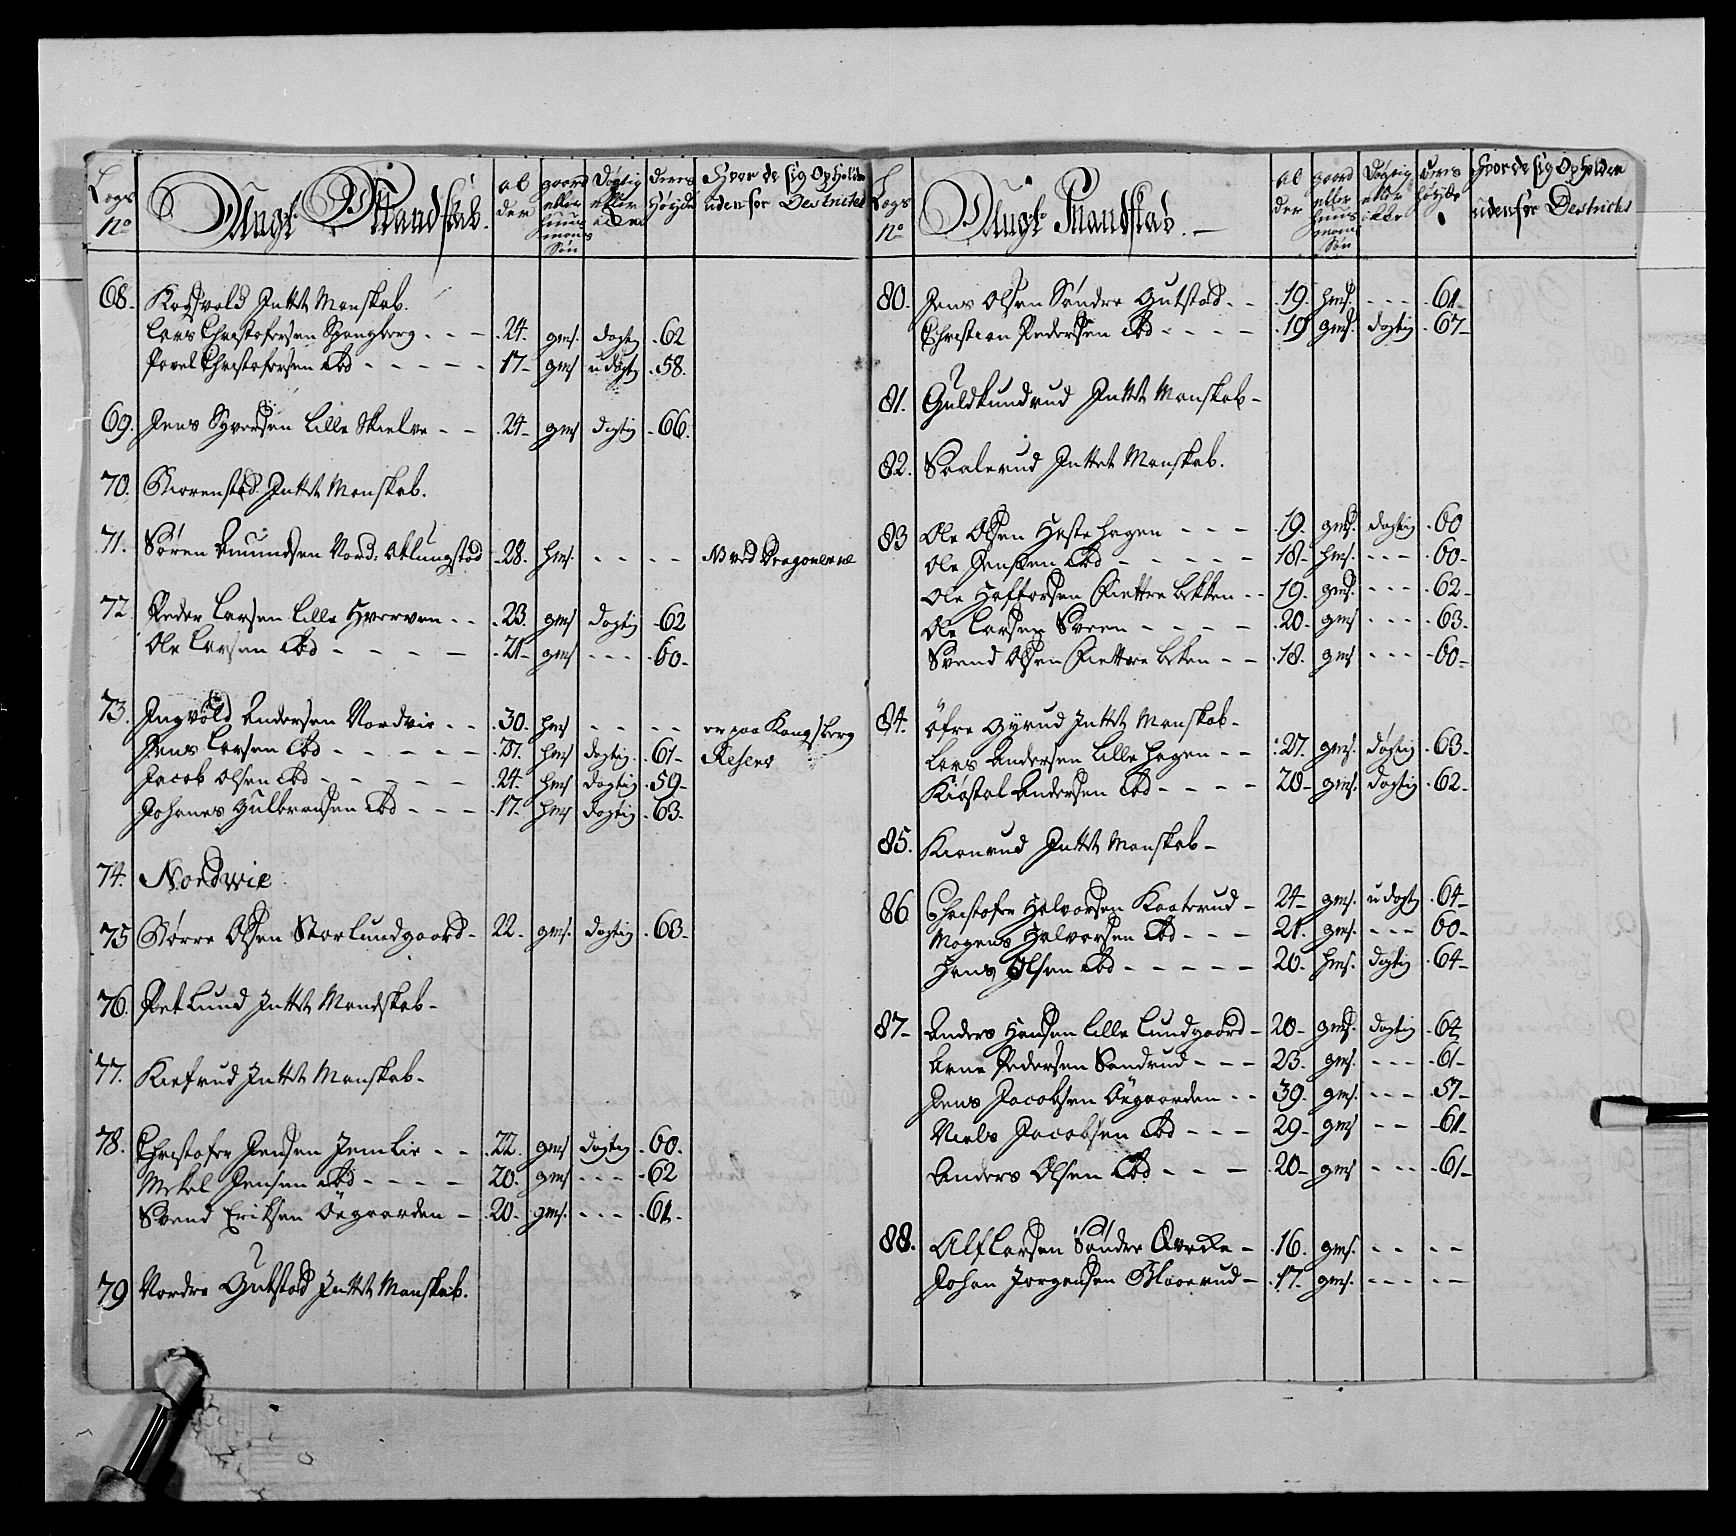 Lægs No
Ungt Mandskab.
al der
gaard eller huus mans Søn
Døgtig eller ikke
deres Høyde
Hvor de sig Opholder udenfor Destrictet
68. Kogsvold Intet Manskab.
Lars Christofersen Spangberg - - - 24. gms. døgtig 62
Povel Christofersen ibd - - - - - 17- gms udøgt. 58.
69. Jens Syversen Lille Skielve - - 24- gms døgtig - 66.
70. Intet Manskab.
71. Søren Amundsen Nord: Aklungstad - 28. hms. - - - - N ved Dragonerne
72 Peder Larsen Lille Hverven - - 23. gms døgtig - 62
Ole Larsen ibd - - - - 21- gms - - - 60-
73. Ingvold Andersen Nordvie - - 30. hms - - - - er paa Kongsberg
Jens Larsen ibd - - - - - hms døgtig. 61- Reserv
Jacob Olsen ibd - - - - - 24- hms døgtig. 59-
Johanes Gulbransen ibd - - - 17- hms døgtig. 63-
74. Nordwie
75 Olsen Storlundgaard - 22. gms. døgtig. 63-
76. Petlund Intet Mandskab-
77. Kiefrud Intet Manskab-
78. Christofer Jensen Jemlie - - 22. gms døgtig - 60.
Mikel Jensen ibd - - - - 20. gms - - - 62
Svend Eriksen Øegaarden - 20- gms. - - - 61-
79 Nordre Gutstad Intet Manskab.
Lægs No
Ungt Mandskab. -
al der
gaard eller huus mans Søn
Døgtig eller ikke
deres høyde
Hvor de sig Opholder udenfor Destrictet
80. Jens Olsen Søndre Gutstad - - 19. hms. - - - 61-
Christian Pedersen ibd - - - - 19 gms. døgtig - 67-
81. Guldkundrud Intet Manskab-
82. Saalerud Intet Manskab.
83 Ole Olsen Hestehagen - - - 19. gms. døgtig - 60
Ole Jensen ibd - - - - - 18- hms. - - - 60-
Ole Haftorsen Fiettre Bakken - - 19- gms. - - - 62-
Ole Larsen Sveen - - - - 20- gms - - - 63-
Svend Olsen Fiettre Baken - - 18. gms - - - 60-
84. Øfre Gyrud Intet Manskab-
Lars Andersen Lille Hagen - - 27. gms. døgtig - 63-
Kiøstol Andersen ibd - - - - 20- gms. døgtig - 62-
85. Kionrud Intet Manskab-
86 Christofer Halvorsen Kaaterud - 24- gms. udøgt. 64-
Mogens Halvorsen ibd - - - 21. gms. - - - 60-
Hans Olsen ibd - - - - - 20- hms. døgtig. 64-
87- Anders Hansen Lille Lundgaard - 20- gms. døgtig - 64
Arne Pedersen Sandrud - - - 23. gms. - - - 61-
Jens Jacobsen Øegaarden - - 39. gms. - - - 57-
Niels Jacobsen ibd - - - 29- gms - - - 61-
Anders Olsen ibd - - - 20- gms - - - 61-
88. Alf Larsen Søndre - 16. gms. - - - -
Johan Jørgensen - 17. gms. - - - -